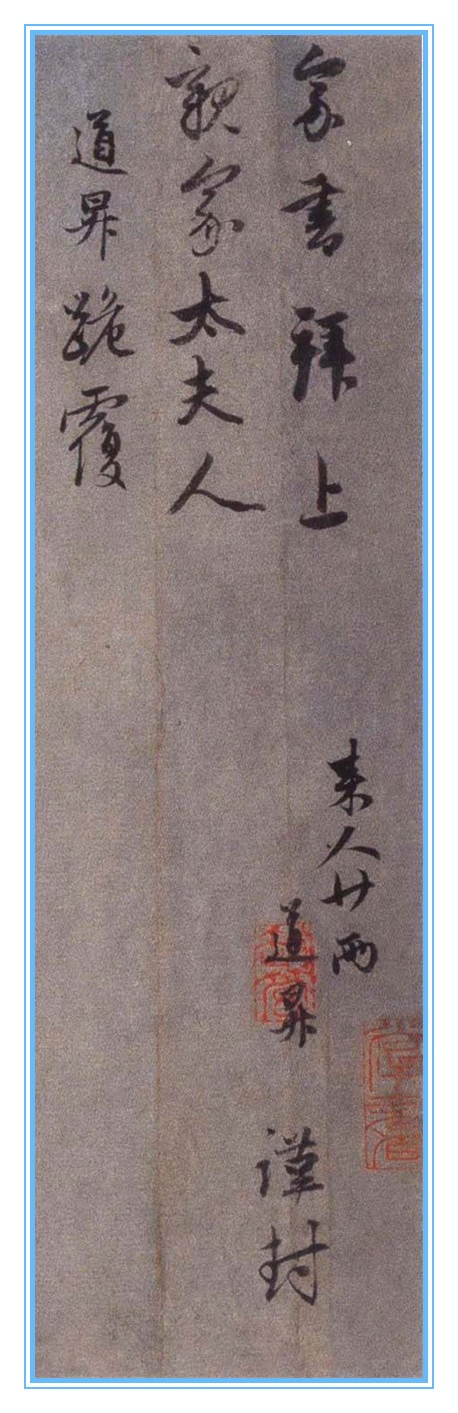 家書拜上
来人廿兩
道昇 謹封
親家太夫人
道昇跪覆